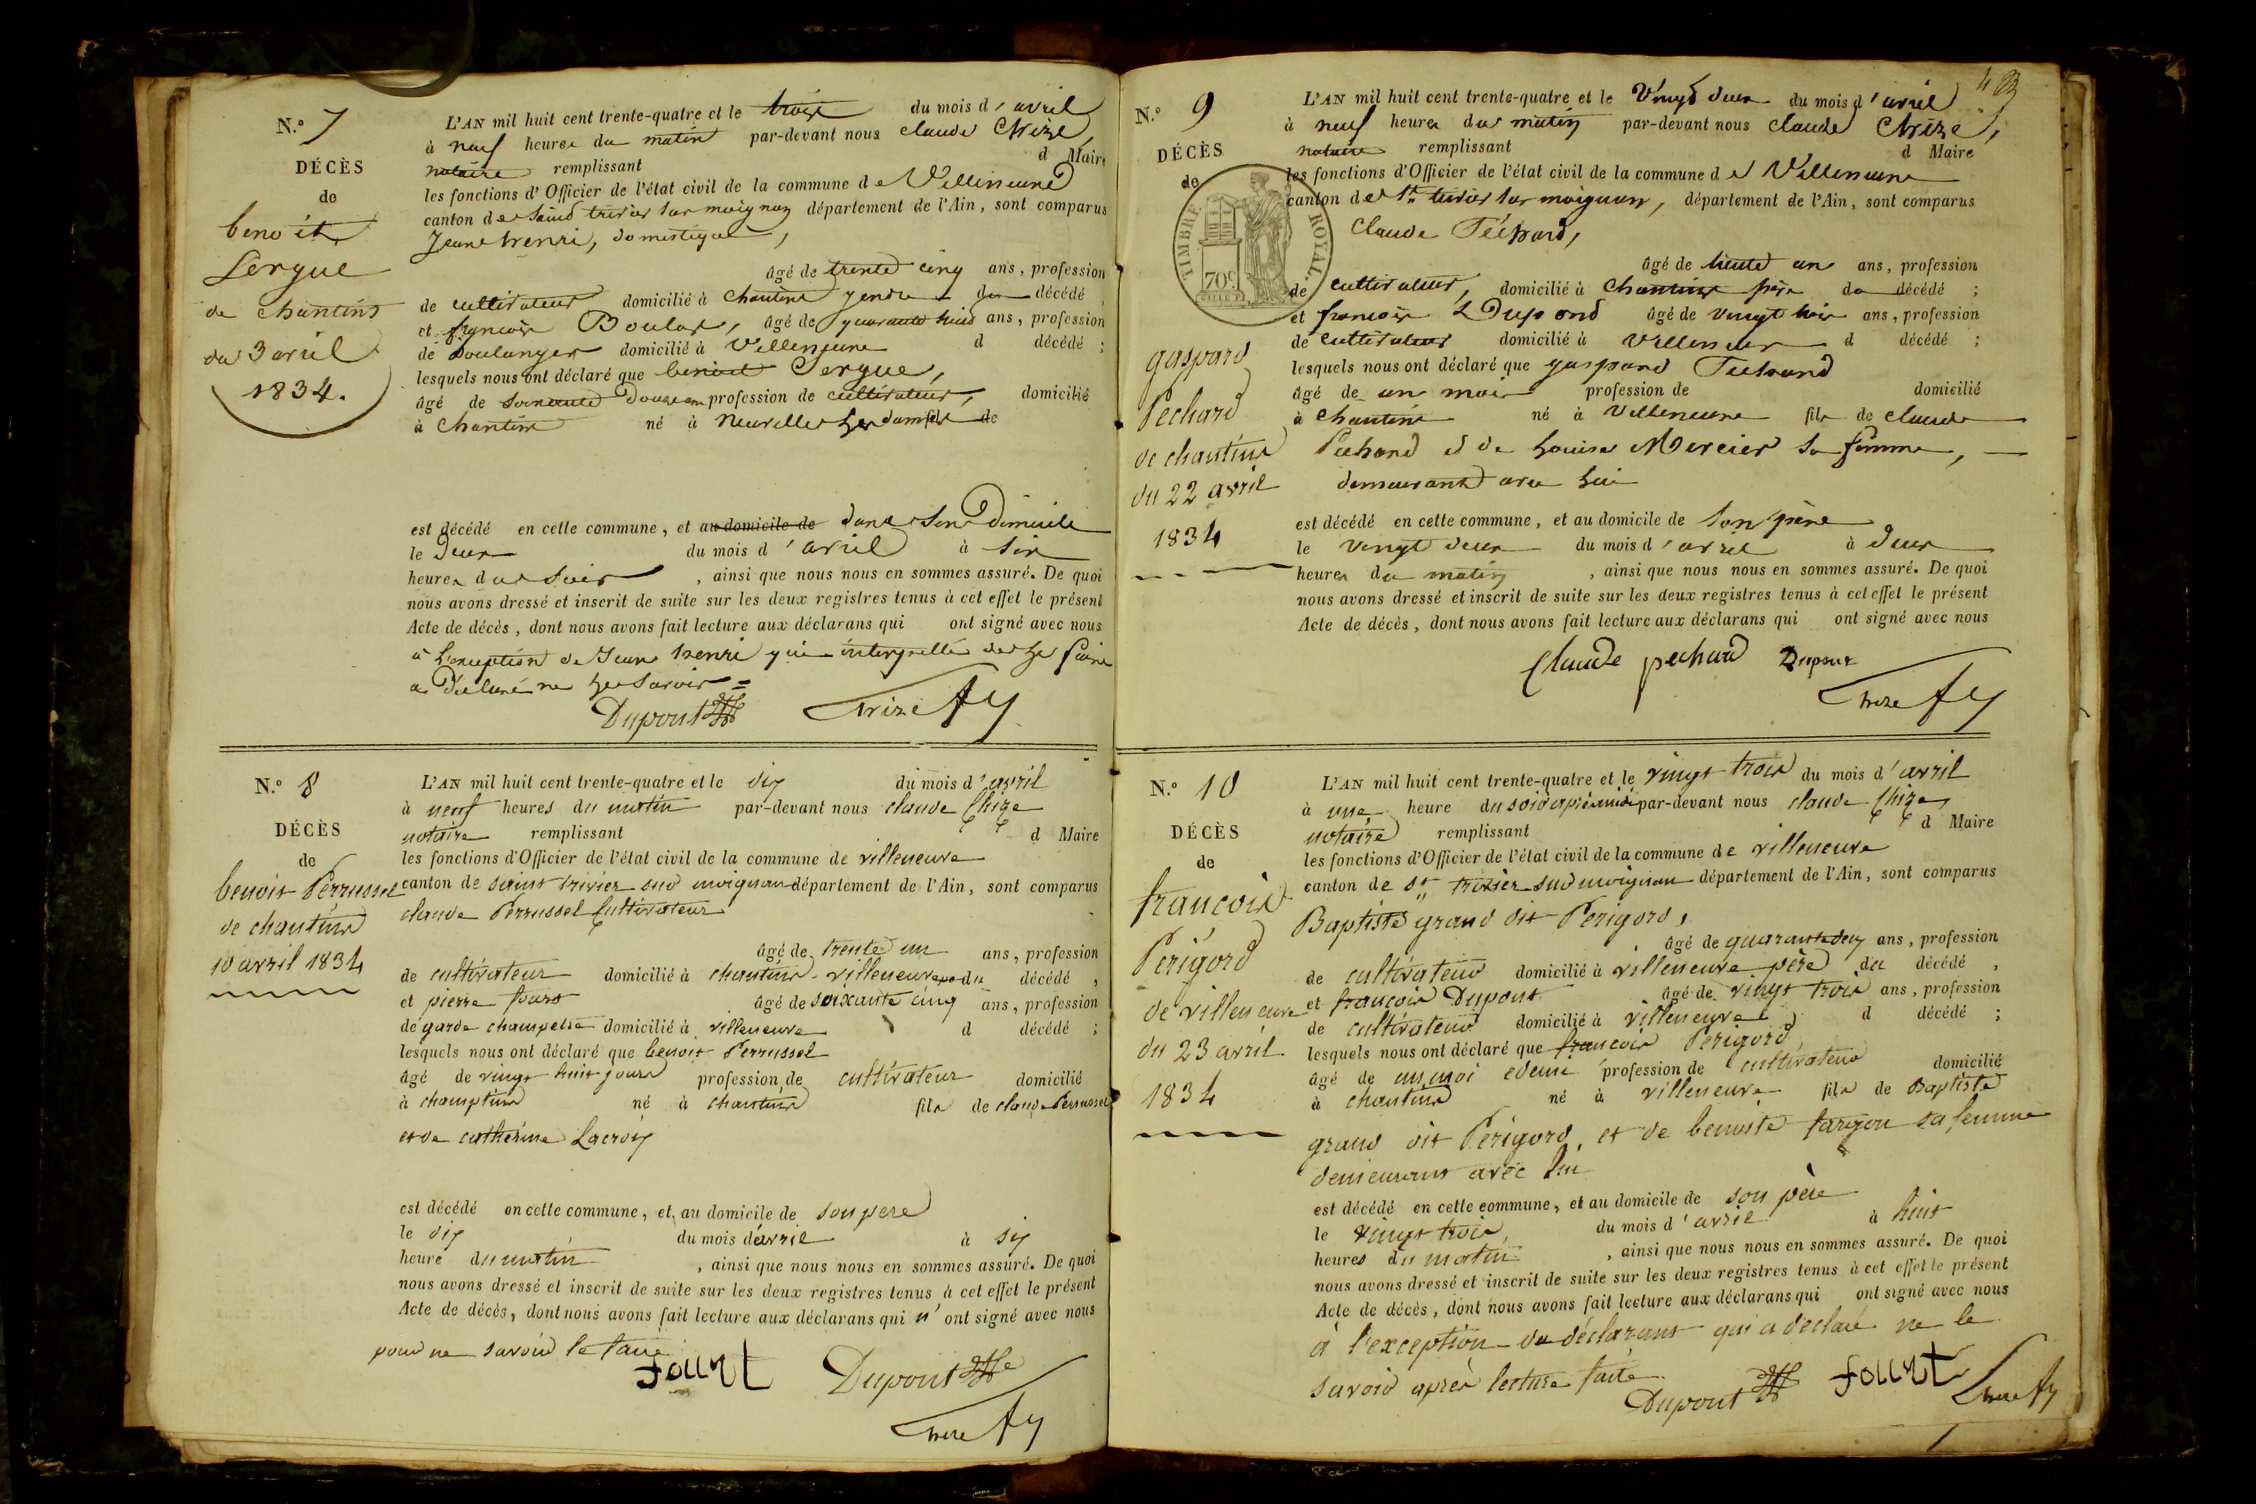 N.° 7
DÉCÈS
de
benoit
Sergue
de chantins
du 3 avril
1834.
L'AN mil huit cent trente-quatre et le trois du mois d'avril
à neuf heures du matin par-devant nous claude Chize,
notaire remplissant d Maire
les fonctions d'Officier de l'état civil de la commune de Villeneuve
canton de Saint trivier sur moignan département de l'Ain, sont comparus
Jean henri, domestique,
âgé de trente cinq ans, profession
de cultivateur domicilié à chantins gendre du décédé,
et françois Boular, âgé de quarante huit ans, profession
de Boulanger domicilié à Villeneuve d décédé ;
lesquels nous ont déclaré que benoit Sergue,
âgé de soixante douze ans profession de cultivateur, domicilié
à Chantins né à Neuville les dames fils de
est décédé en cette commune, et au domicile de dans son Domicile
le Deux du mois d'avril à six
heures du soir, ainsi que nous nous en sommes assuré. De quoi
nous avons dressé et inscrit de suite sur les deux registres tenus à cet effet le présent
Acte de décès, dont nous avons fait lecture aux déclarans qui ont signé avec nous
à l'exception de Jean henri qui interpellé de le faire
a Déclaré ne le savoir =
Dupont Chize
N.° 8
DÉCÈS
de
benoit Perrussel
de chantins
10 avril 1834
L'AN mil huit cent trente-quatre et le dix du mois d'avril
à neuf heures du matin par-devant nous claude Chize
notaire remplissant d Maire
les fonctions d'Officier de l'état civil de la commune de villeneuve
canton de saint trivier sur moignan département de l'Ain, sont comparus
claude Perrussel Cultivateur
âgé de trente un ans, profession
de cultivateur domicilié à chantins villeneuve du décédé,
et pierre âgé de soixante cinq ans, profession
de garde champetre domicilié à villeneuve d décédé ;
lesquels nous ont déclaré que benoit Perrussel
âgé de vingt huit jours profession de cultivateur domicilié
à champtins né à chantins fils de claude Perrussel
et de catherine Lacroix
est décédé en cette commune, et au domicile de son pere
le dix du mois d'avril à six
heure du matin, ainsi que nous nous en sommes assuré. De quoi
nous avons dressé et inscrit de suite sur les deux registres tenus à cet effet le présent
Acte de décès, dont nous avons fait lecture aux déclarans qui n'ont signé avec nous
pour ne savoir le faire
Dupont
Chize
N.° 9
DÉCÈS
de
TIMBRE ROYAL
70c
gaspard
Pechard
de chantins
du 22 avril
1834
L'AN mil huit cent trente-quatre et le Vingt deux du mois d'avril
à neuf heures du matin par-devant nous claude Chize,
notaire remplissant d Maire
les fonctions d'Officier de l'état civil de la commune de Villeneuve
canton de St. trivier sur moignan, département de l'Ain, sont comparus
Claude Péchard,
âgé de trente un ans, profession
de cultivateur, domicilié à Chantins père du décédé ;
et françois Dupond âgé de vingt trois ans, profession
de cultivateur domicilié à Villeneuve d décédé ;
lesquels nous ont déclaré que gaspard Péchard
âgé de un mois profession de domicilié
à chantins né à Villeneuve fils de claude
Péchard et de Louise Mercier sa femme,
demeurant avec lui
est décédé en cette commune, et au domicile de son père
le vingt deux du mois d'avril à deux
heures du matin, ainsi que nous nous en sommes assuré. De quoi
nous avons dressé et inscrit de suite sur les deux registres tenus à cet effet le présent
Acte de décès, dont nous avons fait lecture aux déclarans qui ont signé avec nous
Claude pechard Dupont
Chize
N.° 10
DÉCÈS
de
françois
Périgord
de villeneuve
du 23 avril
1834
L'AN mil huit cent trente-quatre et le vingt trois du mois d'avril
à une heure du soir après midi par-devant nous claude Chize,
notaire remplissant d Maire
les fonctions d'Officier de l'état civil de la commune de villeneuve
canton de St. trivier sur moignan département de l'Ain, sont comparus
Baptiste grand dit Perigord,
âgé de quarante deux ans, profession
de cultivateur domicilié à villeneuve père du décédé,
et françois Dupont âgé de vingt trois ans, profession
de cultivateur domicilié à villeneuve d décédé ;
lesquels nous ont déclaré que francois Perigord
âgé de un moi et demi profession de cultivateur domicilié
à chantins né à villeneuve fils de Baptiste
grand dit Perigord, et de benoiste sa femme
demeurant avec lui
est décédé en cette commune, et au domicile de son père
le vingt trois, du mois d'avril à huit
heures du matin, ainsi que nous nous en sommes assuré. De quoi
nous avons dressé et inscrit de suite sur les deux registres tenus à cet effet le présent
Acte de décès, dont nous avons fait lecture aux déclarans qui ont signé avec nous
à l'exception du déclarant qui a declaré ne le
savoir après lecture faite
Dupont Chize